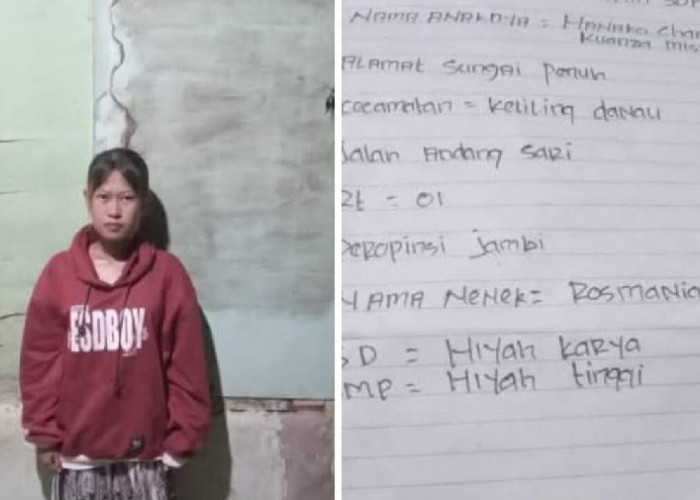 ESDBOY
NAMA ANAKNYA = HANAKO char
Kuanza mis
ALAMAT sungai penuh
cocamatan = keliling danau
Jalan Andang sari
Rt = 01
peropinsi jambi
NAMA NENEK = ROSMANIA
SD = HIYAH KARYA
SMP = HIYAH tinggi